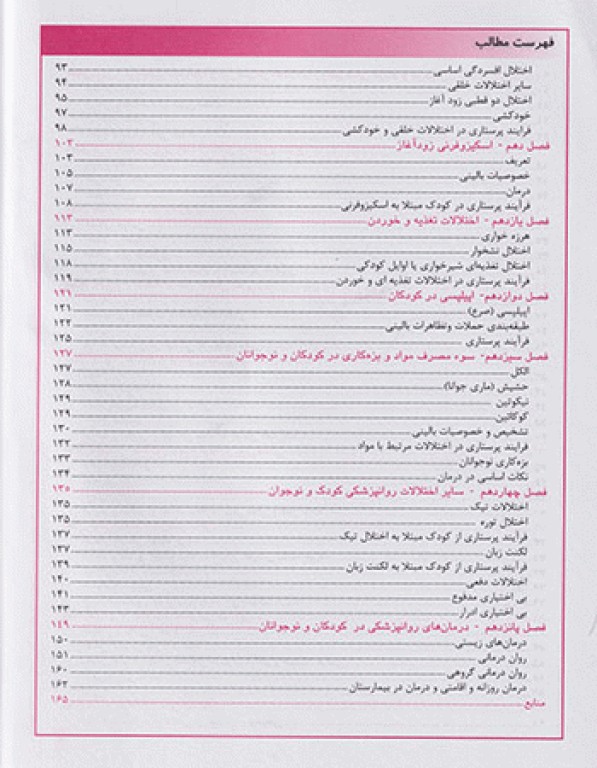 فهرست مطالب
اختلال افسردگی اساسی ۹۳
سایر اختلالات خلقی ۹۴
اختلال دو قطبی زود آغاز ۹۵
خودکشی ۹۷
فرایند پرستاری در اختلالات خلقی و خودکشی ۹۸
فصل دهم - اسکیزوفرنی زودآغاز ۱۰۳
تعریف ۱۰۳
خصوصیات بالینی ۱۰۵
درمان ۱۰۷
فرآیند پرستاری در کودک مبتلا به اسکیزوفرنی ۱۰۸
فصل یازدهم - اختلالات تغذیه و خوردن ۱۱۳
هرزه خواری ۱۱۳
اختلال نشخوار ۱۱۵
اختلال تغذیه‌ای شیرخواری یا اوایل کودکی ۱۱۸
فرآیند پرستاری در اختلالات تغذیه ای و خوردن ۱۱۹
فصل دوازدهم- اپیلپسی در کودکان ۱۲۱
اپیلپسی (صرع) ۱۲۱
طبقه‌بندی حملات وتظاهرات بالینی ۱۲۲
فرآیند پرستاری ۱۲۵
فصل سیزدهم- سوء مصرف مواد و بزه‌کاری در کودکان و نوجوانان ۱۲۷
الکل ۱۲۷
حشیش (ماری جوانا) ۱۲۸
نیکوتین ۱۲۹
کوکائین ۱۲۹
تشخیص و خصوصیات بالینی ۱۳۰
فرایند پرستاری در اختلالات مرتبط با مواد ۱۳۲
بزه‌کاری نوجوانان ۱۳۳
نکات اساسی در درمان ۱۳۴
فصل چهاردهم - سایر اختلالات روانپزشکی کودک و نوجوان ۱۳۵
اختلالات تیک ۱۳۵
اختلال توره ۱۳۵
فرآیند پرستاری از کودک مبتلا به اختلال تیک ۱۳۷
لکنت زبان ۱۳۷
فرآیند پرستاری از کودک مبتلا به لکنت زبان ۱۳۹
اختلالات دفعی ۱۴۰
بی اختیاری مدفوع ۱۴۱
بی اختیاری ادرار ۱۴۳
فصل پانزدهم - درمان‌های روانپزشکی در کودکان و نوجوانان ۱۴۹
درمان‌های زیستی ۱۵۰
روان درمانی ۱۵۱
روان درمانی گروهی ۱۶۰
درمان روزانه و اقامتی و درمان در بیمارستان ۱۶۲
منابع ۱۶۵